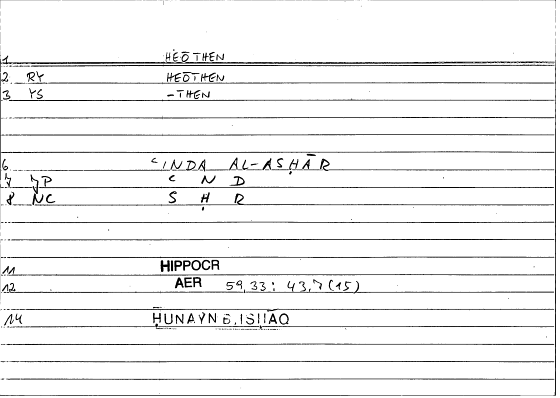 1 HĒŌTHEN
2 RY HEŌTHEN
3 YS -THEN
6 ʿINDA AL-ASḤĀR
7 JP ʿ N D
8 NC S Ḥ R
11 HIPPOCR
12 AER 59,33: 43,7(15)
14 ḤUNAYN B. ISḤĀQ